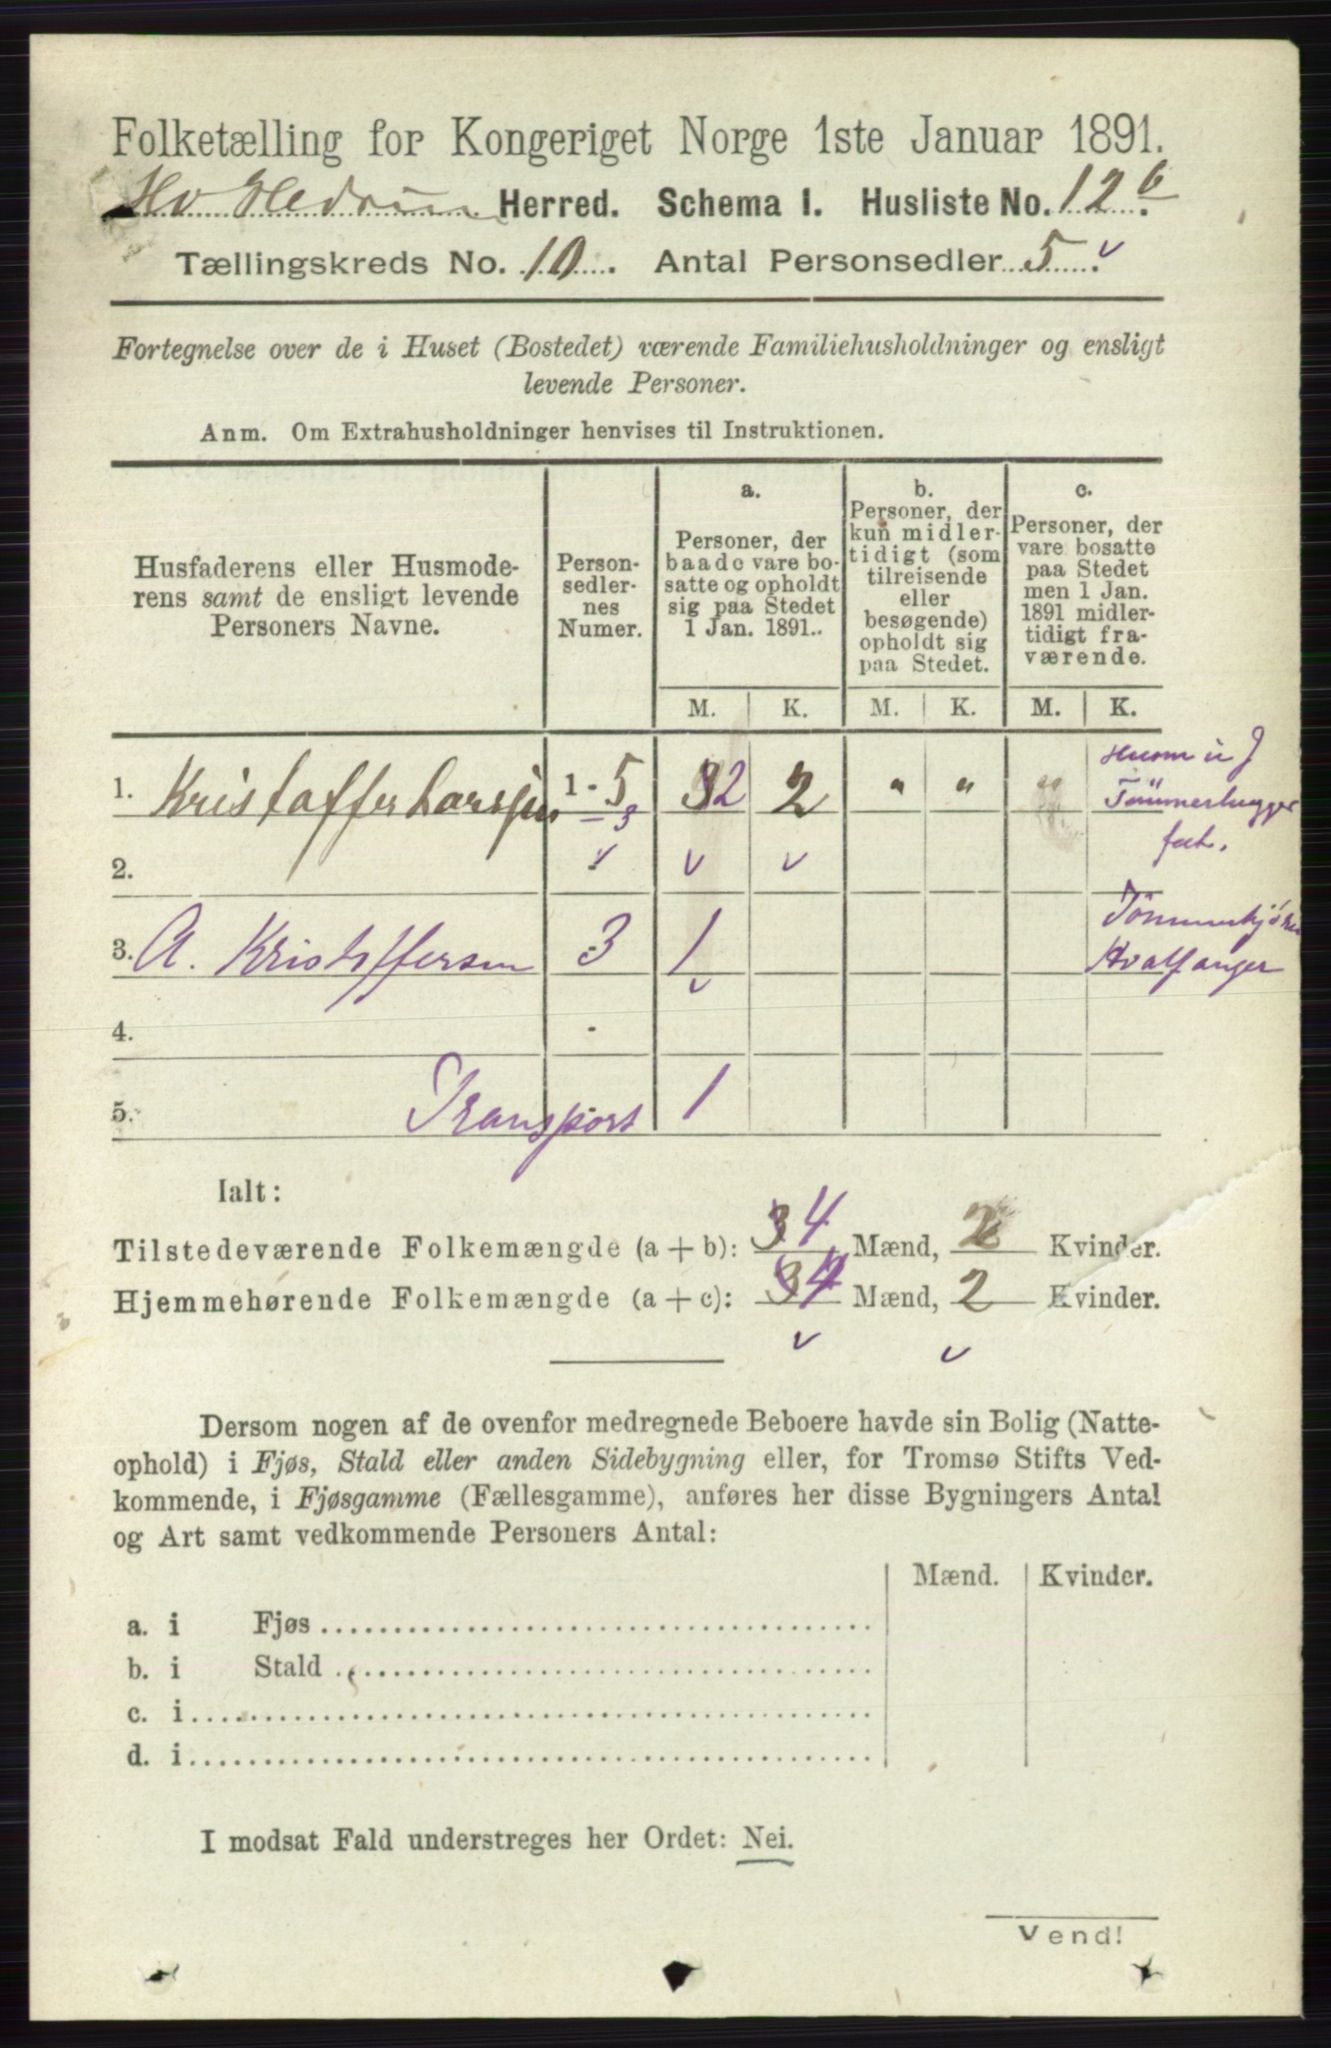 Folketælling for Kongeriget Norge 1ste Januar 1891.
Hedrum Herred. Schema I. Husliste No. 12 b.
Tællingskreds No. 10. Antal Personsedler 5 v.
Fortegnelse over de i Huset (Bostedet) værende Familiehusholdninger og ensligt
levende Personer.
Anm. Om Extrahusholdninger henvises til Instruktionen.
Husfaderens eller Husmode-
rens samt de ensligt levende
Personers Navne.
Person-
sedler-
nes
Numer.
a.
Personer, der
baade vare bo-
satte og opholdt
sig paa Stedet
1 Jan. 1891..
b.
Personer, der
kun midler-
tidigt (som
tilreisende
eller
besøgende)
opholdt sig
paa Stedet.
c.
Personer, der
vare bosatte
paa Stedet
men 1 Jan.
1891 midler-
tidigt fra-
værende.
M. K. M. K. M. K.
1. Kristaffer Larssen 1 - 5 3 2 2 " " " Husm u J
– 3 Tømmerhugger
2. v v v fat.
3. A. Kristoffersen 3 1 Tømmerkjører
v Hvalfanger
4.
5. Transport 1
Ialt:
Tilstedeværende Folkemængde (a + b): 3 4 Mænd, 2 Kvinder.
Hjemmehørende Folkemængde (a + c): 3 4 Mænd, 2 Kvinder.
v v
Dersom nogen af de ovenfor medregnede Beboere havde sin Bolig (Natte-
ophold) i Fjøs, Stald eller anden Sidebygning eller, for Tromsø Stifts Ved-
kommende, i Fjøsgamme (Fællesgamme), anføres her disse Bygningers Antal
og Art samt vedkommende Personers Antal:
Mænd. Kvinder.
a. i Fjøs
b. i Stald
c. i
d. i
I modsat Fald understreges her Ordet: Nei.
Vend!